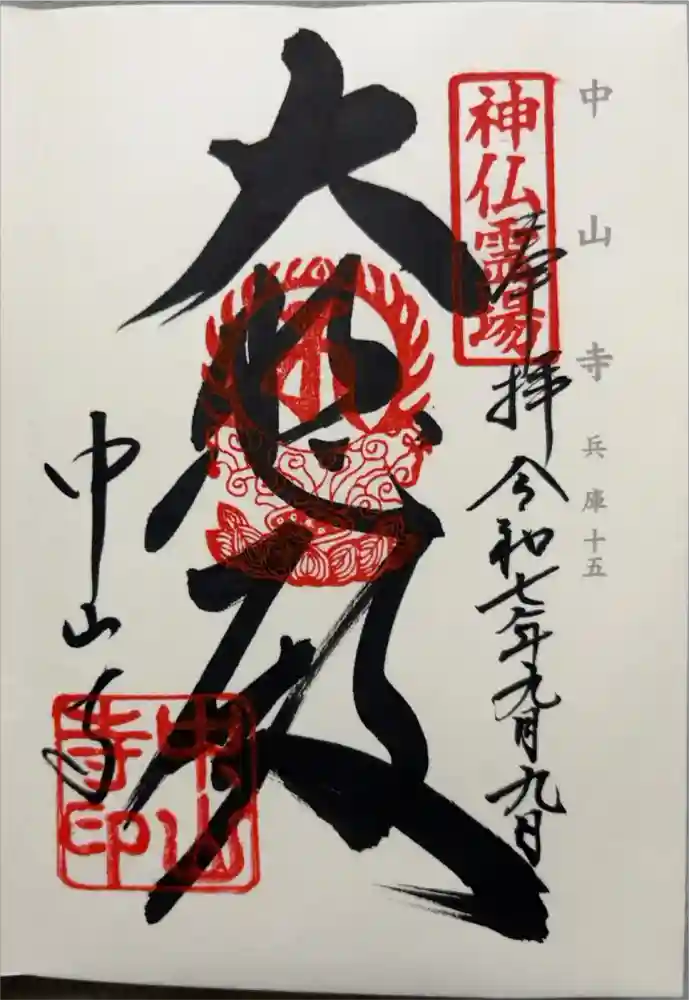 中山寺 兵庫十五
神仏霊場
奉拝 令和七年元月九日
大悲殿
中山寺
中山寺印